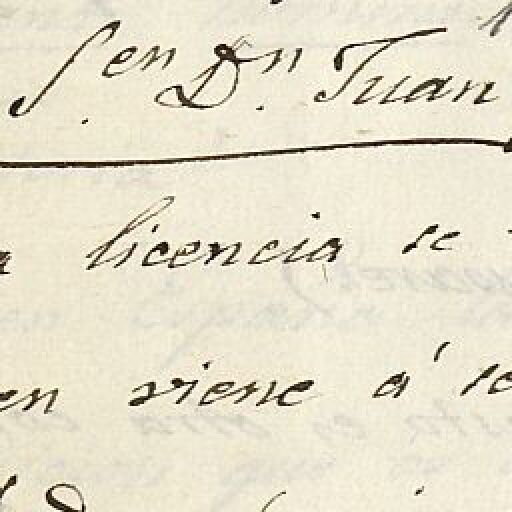 S.en D.n Juan
licencia se
en viene á se